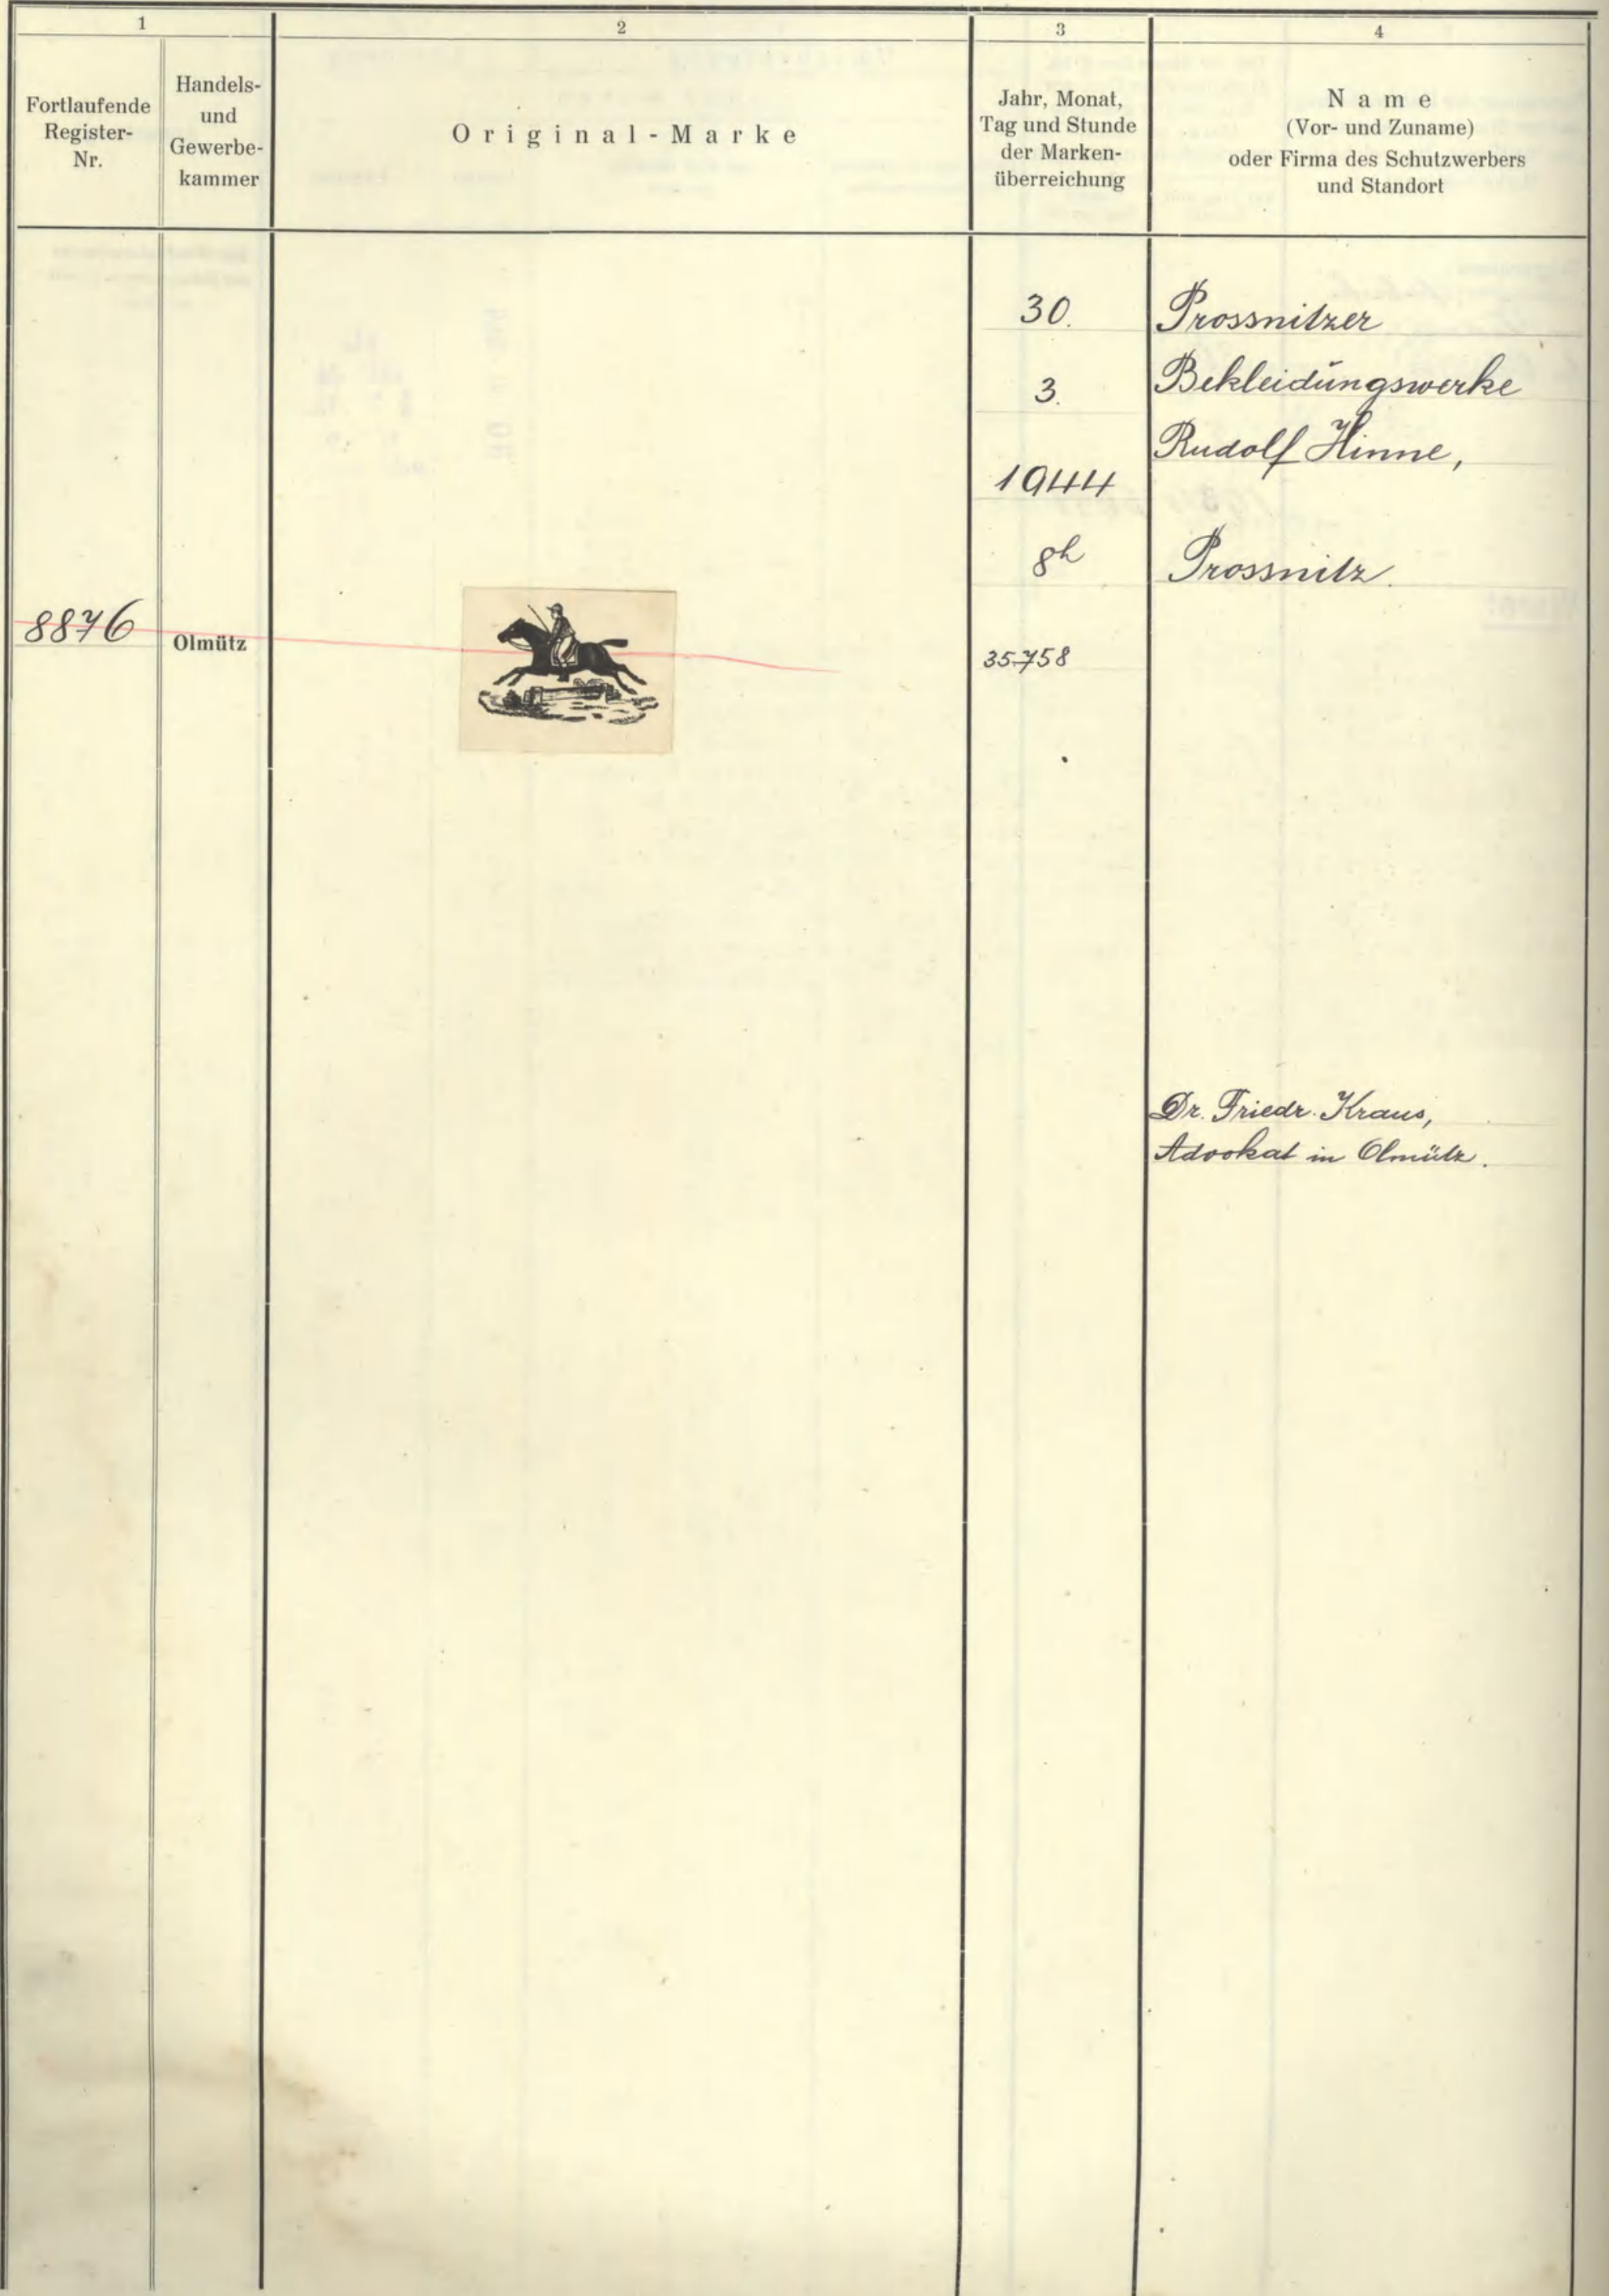 1
2
3
4
Fortlaufende
Register-
Nr.
Handels-
und
Gewerbe-
kammer
Original-Marke
Jahr, Monat,
Tag und Stunde
der Marken-
überreichung
Name
(Vor- und Zuname)
oder Firma des Schutzwerbers
und Standort
8876
Olmütz
30.
3.
1944
8h
35758
Prossnitzer
Bekleidungswerke
Rudolf Hinne,
Prossnitz.
Dr. Friedr. Kraus,
Advokat in Olmütz.